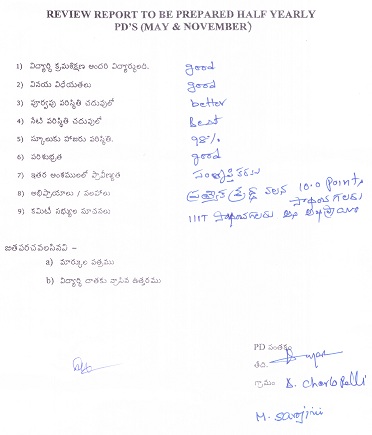 REVIEW REPORT TO BE PREPARED HALF YEARLY
PD'S (MAY & NOVEMBER)
1) విద్యార్థి క్రమశిక్షణ అందరి విద్యార్థులది. good
2) వినయ విధేయతలు good
3) పూర్వపు పరిస్థితి చదువులో better
4) నేటి పరిస్థితి చదువులో Best
5) స్కూలుకు హాజరు పరిస్థితి. 98%
6) పరిశుభ్రత good
7) ఇతర అంశములలో ప్రావీణ్యత
8) అభిప్రాయాలు / సలహాలు శ్రద్ధ వలన 10.0 Points
9) కమిటీ సభ్యుల సూచనలు IIIT
జతపరచవలసినవి –
a) మార్కుల పత్రము
b) విద్యార్థి దాతకు వ్రాసిన ఉత్తరము
PD సంతకం
తేది.
గ్రామం D. Charlopalli
M. Sarojini